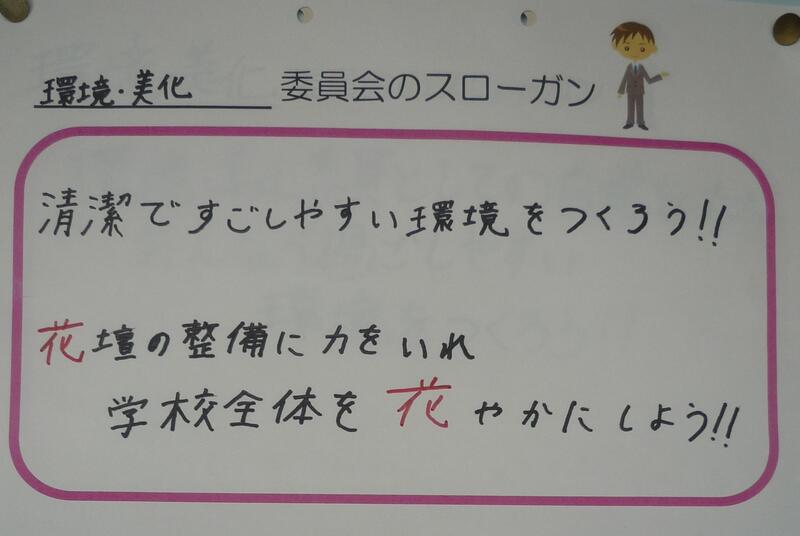 環境・美化 委員会のスローガン
清潔ですごしやすい環境をつくろう!!
花壇の整備に力をいれ
学校全体を花やかにしよう!!